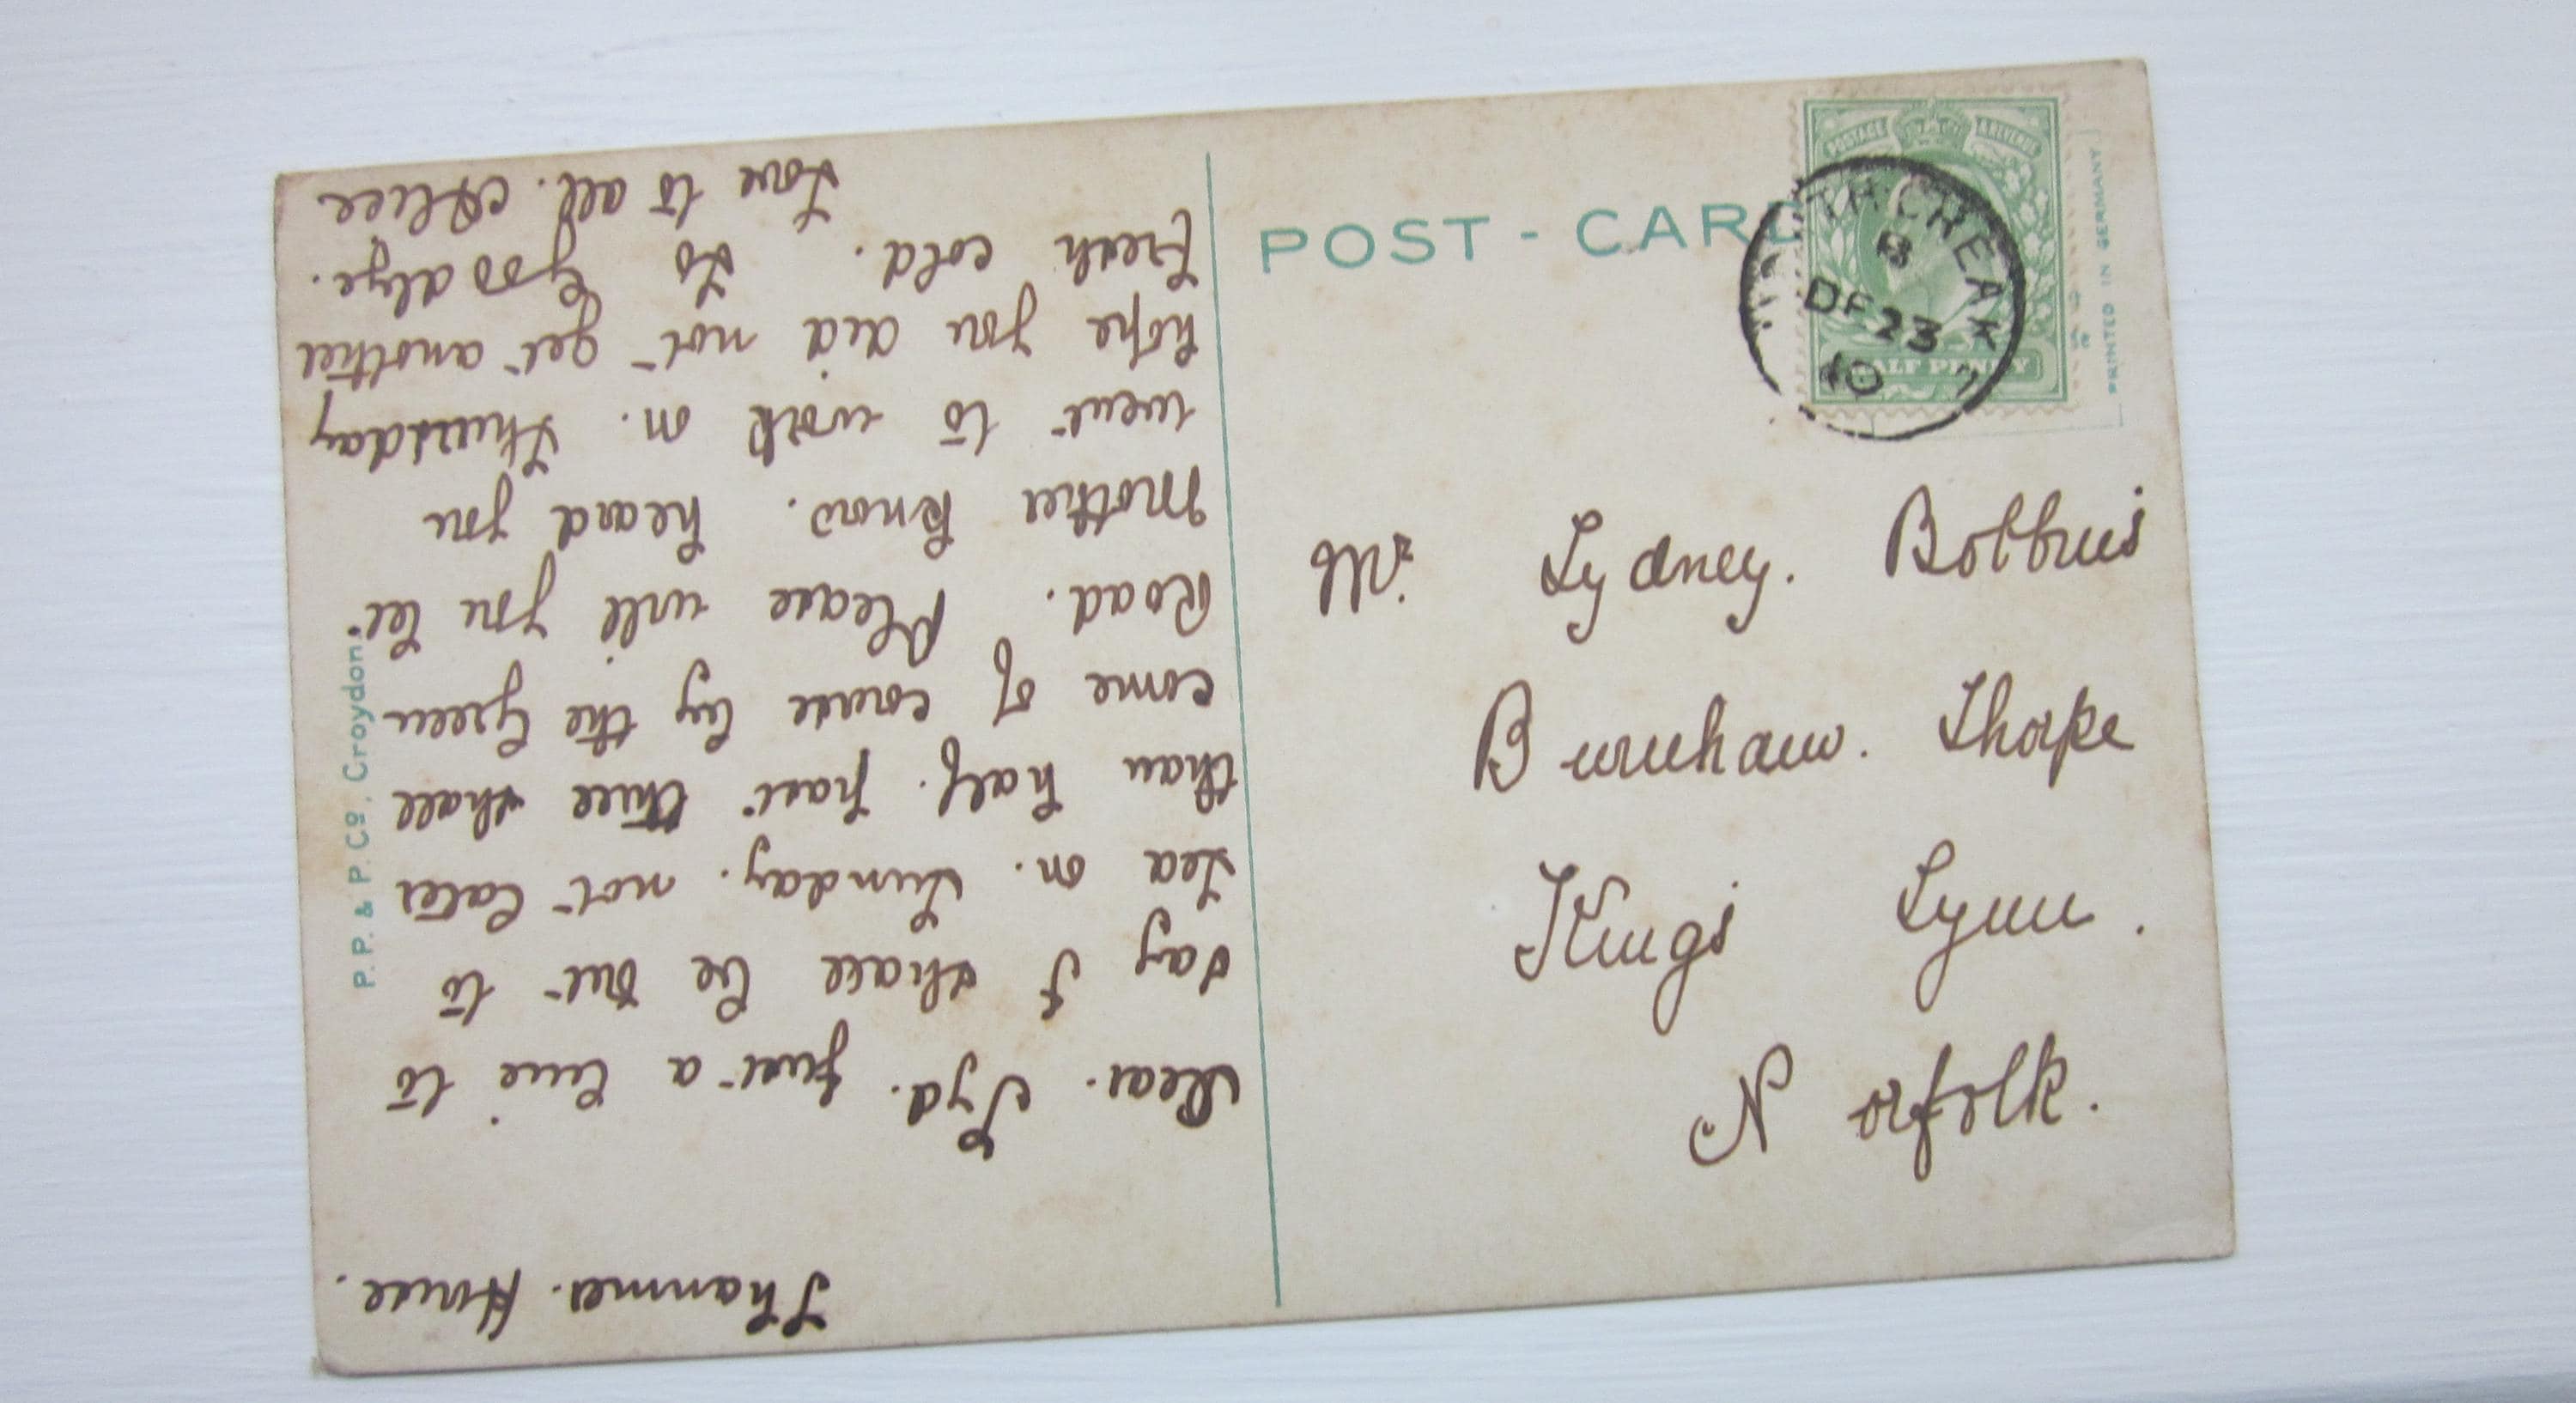 POST - CARD
POSTAGE & REVENUE
HALF PENNY
TH CREAK
B
DE 23
10
PRINTED IN GERMANY
P. P. & P. Co., Croydon.
Mr. Sydney. Bobbins
Burnham. Thorpe
Kings Lynn.
Norfolk.
House.
Dear. Syd. Just a line to
say I shall be out to
Tea on. Sunday. not later
than half. past three shall
come of course by the Green
Road. Please will you let
Mother know. heard you
went to work on. Thursday
hope you did not get another
fresh cold. So Goodbye.
Love to all. Alice